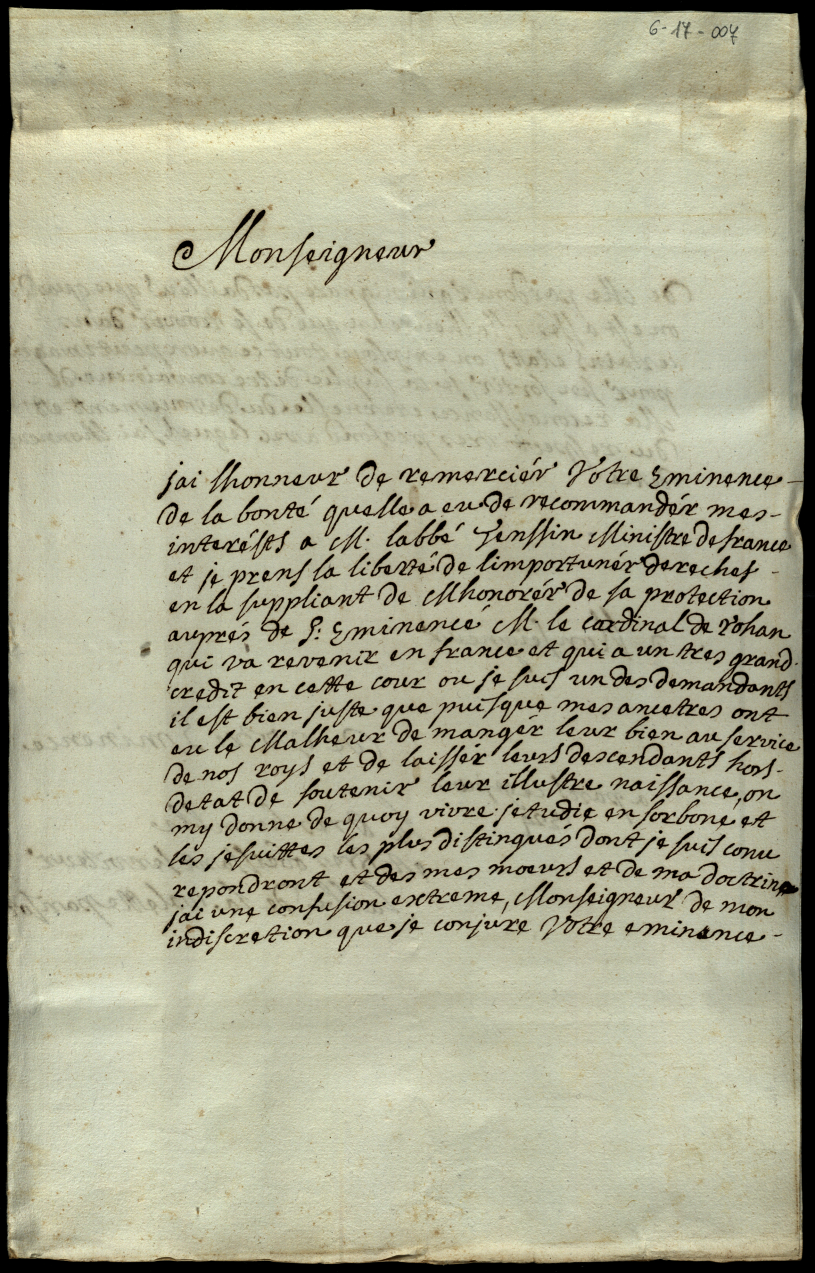 6-17-007
Monseigneur
jai lhonneur de remerciér Votre Eminence
de la bonté quelle a eu de recommandér mes
interésts a M. labbé Tenssin Ministre de france
et je prens la liberté de limportunér derechef
en la suppliant de Mhonorér de sa protection
auprés de S: Eminence M. le cardinal de rohan
qui va revenir en france et qui a un tres grand
credit en cette cour ou je suis un des demandants
il est bien juste que puisque mes ancetres ont
eu le Malheur de mangér leur bien au service
de nos roys et de laissér leurs descendants hors
detat de soutenir leur illustre naissance, on
my donne de quoy vivre. jetudie en sorbone et
les jesuittes les plus distingués dont je suis conu
repondront et des mes moeurs et de ma doctrine
jai une confusion extreme, Monseigneur de mon
indiscretion que je conjure Votre eminence